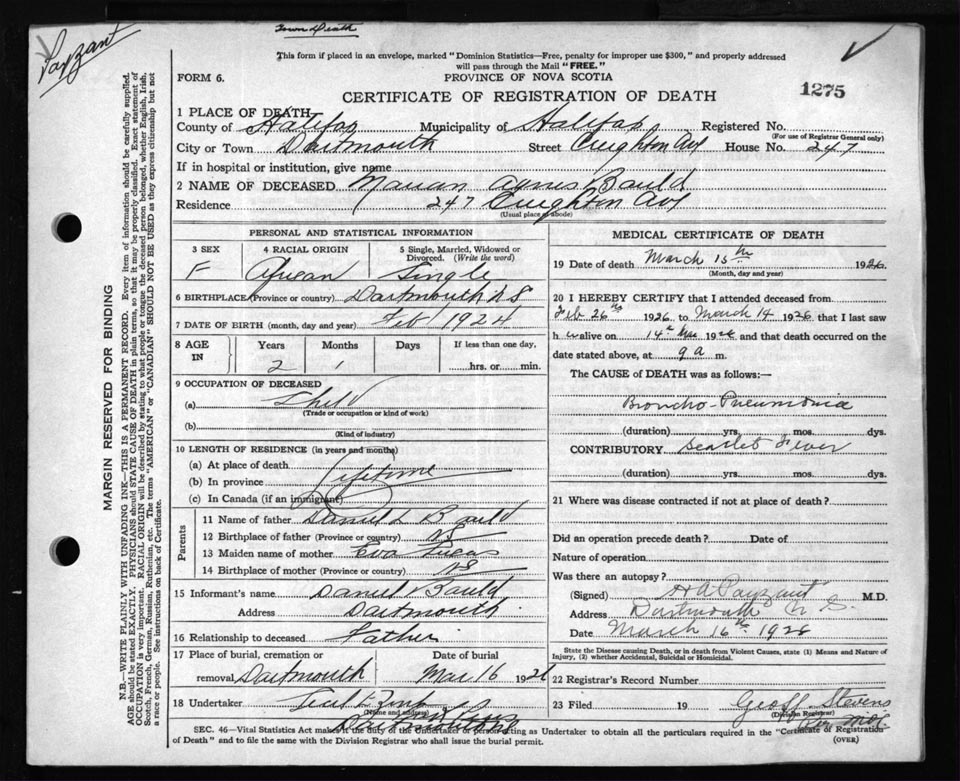 Payzant
Town Death
This form if placed in an envelope, marked "Dominion Statistics—Free, penalty for improper use $300," and properly addressed
will pass through the Mail "FREE."
FORM 6.
PROVINCE OF NOVA SCOTIA
1275
CERTIFICATE OF REGISTRATION OF DEATH
1 PLACE OF DEATH
County of Halifax Municipality of Halifax Registered No.
(For use of Registrar General only)
City or Town Dartmouth Street Crighton Ave House No. 247
If in hospital or institution, give name
2 NAME OF DECEASED Marian Agnes Bauld
Residence 247 Crighton Ave
(Usual place of abode)
PERSONAL AND STATISTICAL INFORMATION
3 SEX
F
4 RACIAL ORIGIN
African
5 Single, Married, Widowed or
Divorced. (Write the word)
Single
6 BIRTHPLACE (Province or country) Dartmouth N S
7 DATE OF BIRTH (month, day and year) Feb 1924
8 AGE
IN
Years
2
Months
1
Days
If less than one day,
hrs. or min.
9 OCCUPATION OF DECEASED
(a) Child
(Trade or occupation or kind of work)
(b)
(Kind of industry)
10 LENGTH OF RESIDENCE (in years and months)
(a) At place of death
(b) In province Lifetime
(c) In Canada (if an immigrant)
Parents
11 Name of father Daniel L Bauld
12 Birthplace of father (Province or country) NS
13 Maiden name of mother Eva Lucas
14 Birthplace of mother (Province or country) NS
15 Informant's name Daniel Bauld
Address Dartmouth
16 Relationship to deceased Father
17 Place of burial, cremation or
removal Dartmouth
Date of burial
Mar 16 1926
18 Undertaker
(Name and address)
Dartmouth
MEDICAL CERTIFICATE OF DEATH
19 Date of death March 15th 1926
(Month, day and year)
20 I HEREBY CERTIFY that I attended deceased from
Feb 26th 1926 to March 14 1926 that I last saw
h alive on 14th Mar 1926 and that death occurred on the
date stated above, at 9 a m.
The CAUSE of DEATH was as follows:—
Broncho-Pneumonia
(duration) yrs. mos. dys.
CONTRIBUTORY Scarlet Fever
(duration) yrs. mos. dys.
21 Where was disease contracted if not at place of death?
Did an operation precede death? Date of
Nature of operation
Was there an autopsy?
(Signed) H A Payzant M.D.
Address Dartmouth N. S.
Date March 16th 1926
State the Disease causing Death, or in death from Violent Causes, state (1) Means and Nature of
Injury, (2) whether Accidental, Suicidal or Homicidal.
22 Registrar's Record Number
23 Filed 19 Geoff Stevens
(Division Registrar)
SEC. 46—Vital Statistics Act makes it the duty of the Undertaker or person acting as Undertaker to obtain all the particulars required in the "Certificate of Registration
of Death" and to file the same with the Division Registrar who shall issue the burial permit.
(OVER)
MARGIN RESERVED FOR BINDING
N.B.—WRITE PLAINLY WITH UNFADING INK—THIS IS A PERMANENT RECORD. Every item of information should be carefully supplied.
AGE should be stated EXACTLY. PHYSICIANS should STATE CAUSE OF DEATH in plain terms, so that it may be properly classified. Exact statement of
OCCUPATION is very important. RACIAL ORIGIN will be described by stating to what people or tongue the deceased person belonged, whether English, Irish,
Scotch, French, German, Russian, Ruthenian, etc. The terms "AMERICAN" or "CANADIAN" SHOULD NOT BE USED as they express citizenship but not
a race or people. See instructions on back of Certificate.